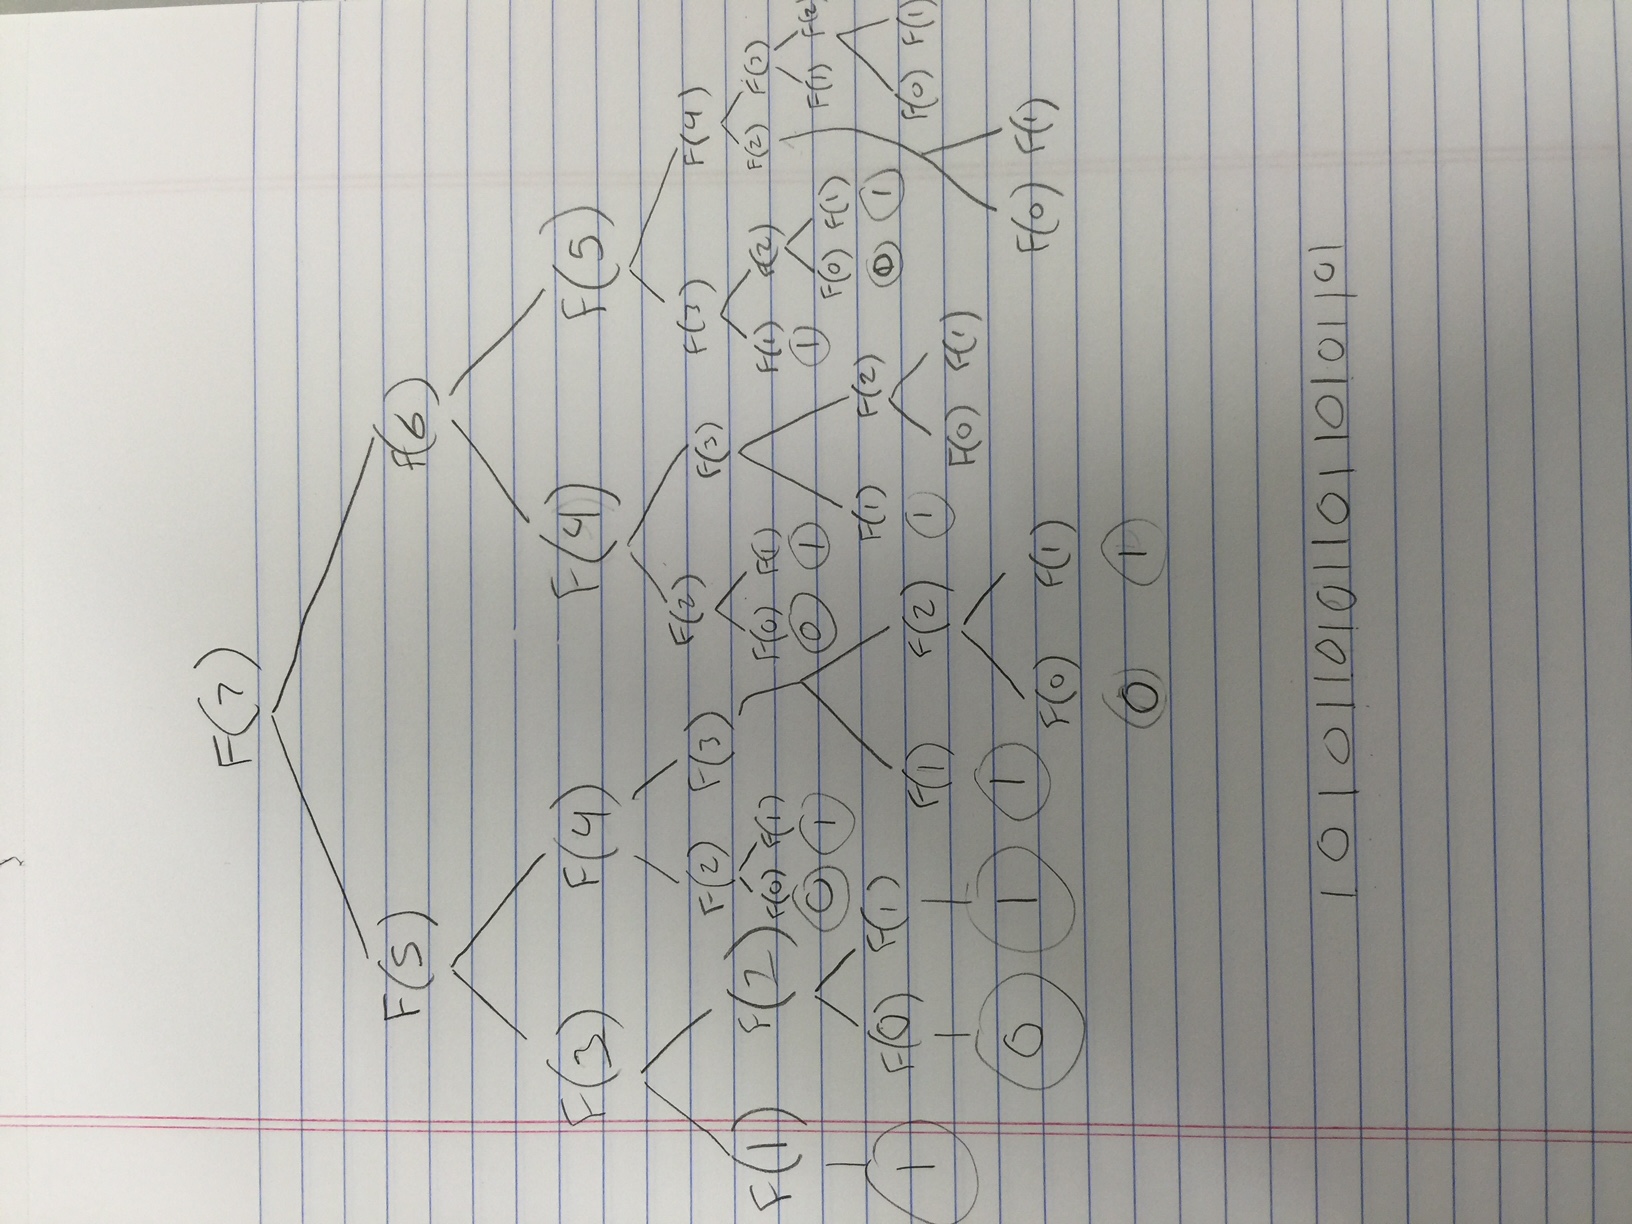 F(7)
F(5) F(6)
F(3) F(4) F(4) F(5)
F(2) F(3) F(2) F(3) F(3) F(4)
F(1) F(2) F(0) F(1) F(0) F(1) F(1) F(2) F(2) F(3)
0 1 0 1 1 F(0) F(1) F(1) F(2)
F(0) F(1) F(1) F(2) 0 1
1 F(1) F(2) 1 F(0) F(1) F(0) F(1)
0 1 1 F(0) F(1) F(0) F(1)
0 1
1 0 1 0 1 1 0 1 0 1 1 0 1 1 0 1 0 1 1 0 1